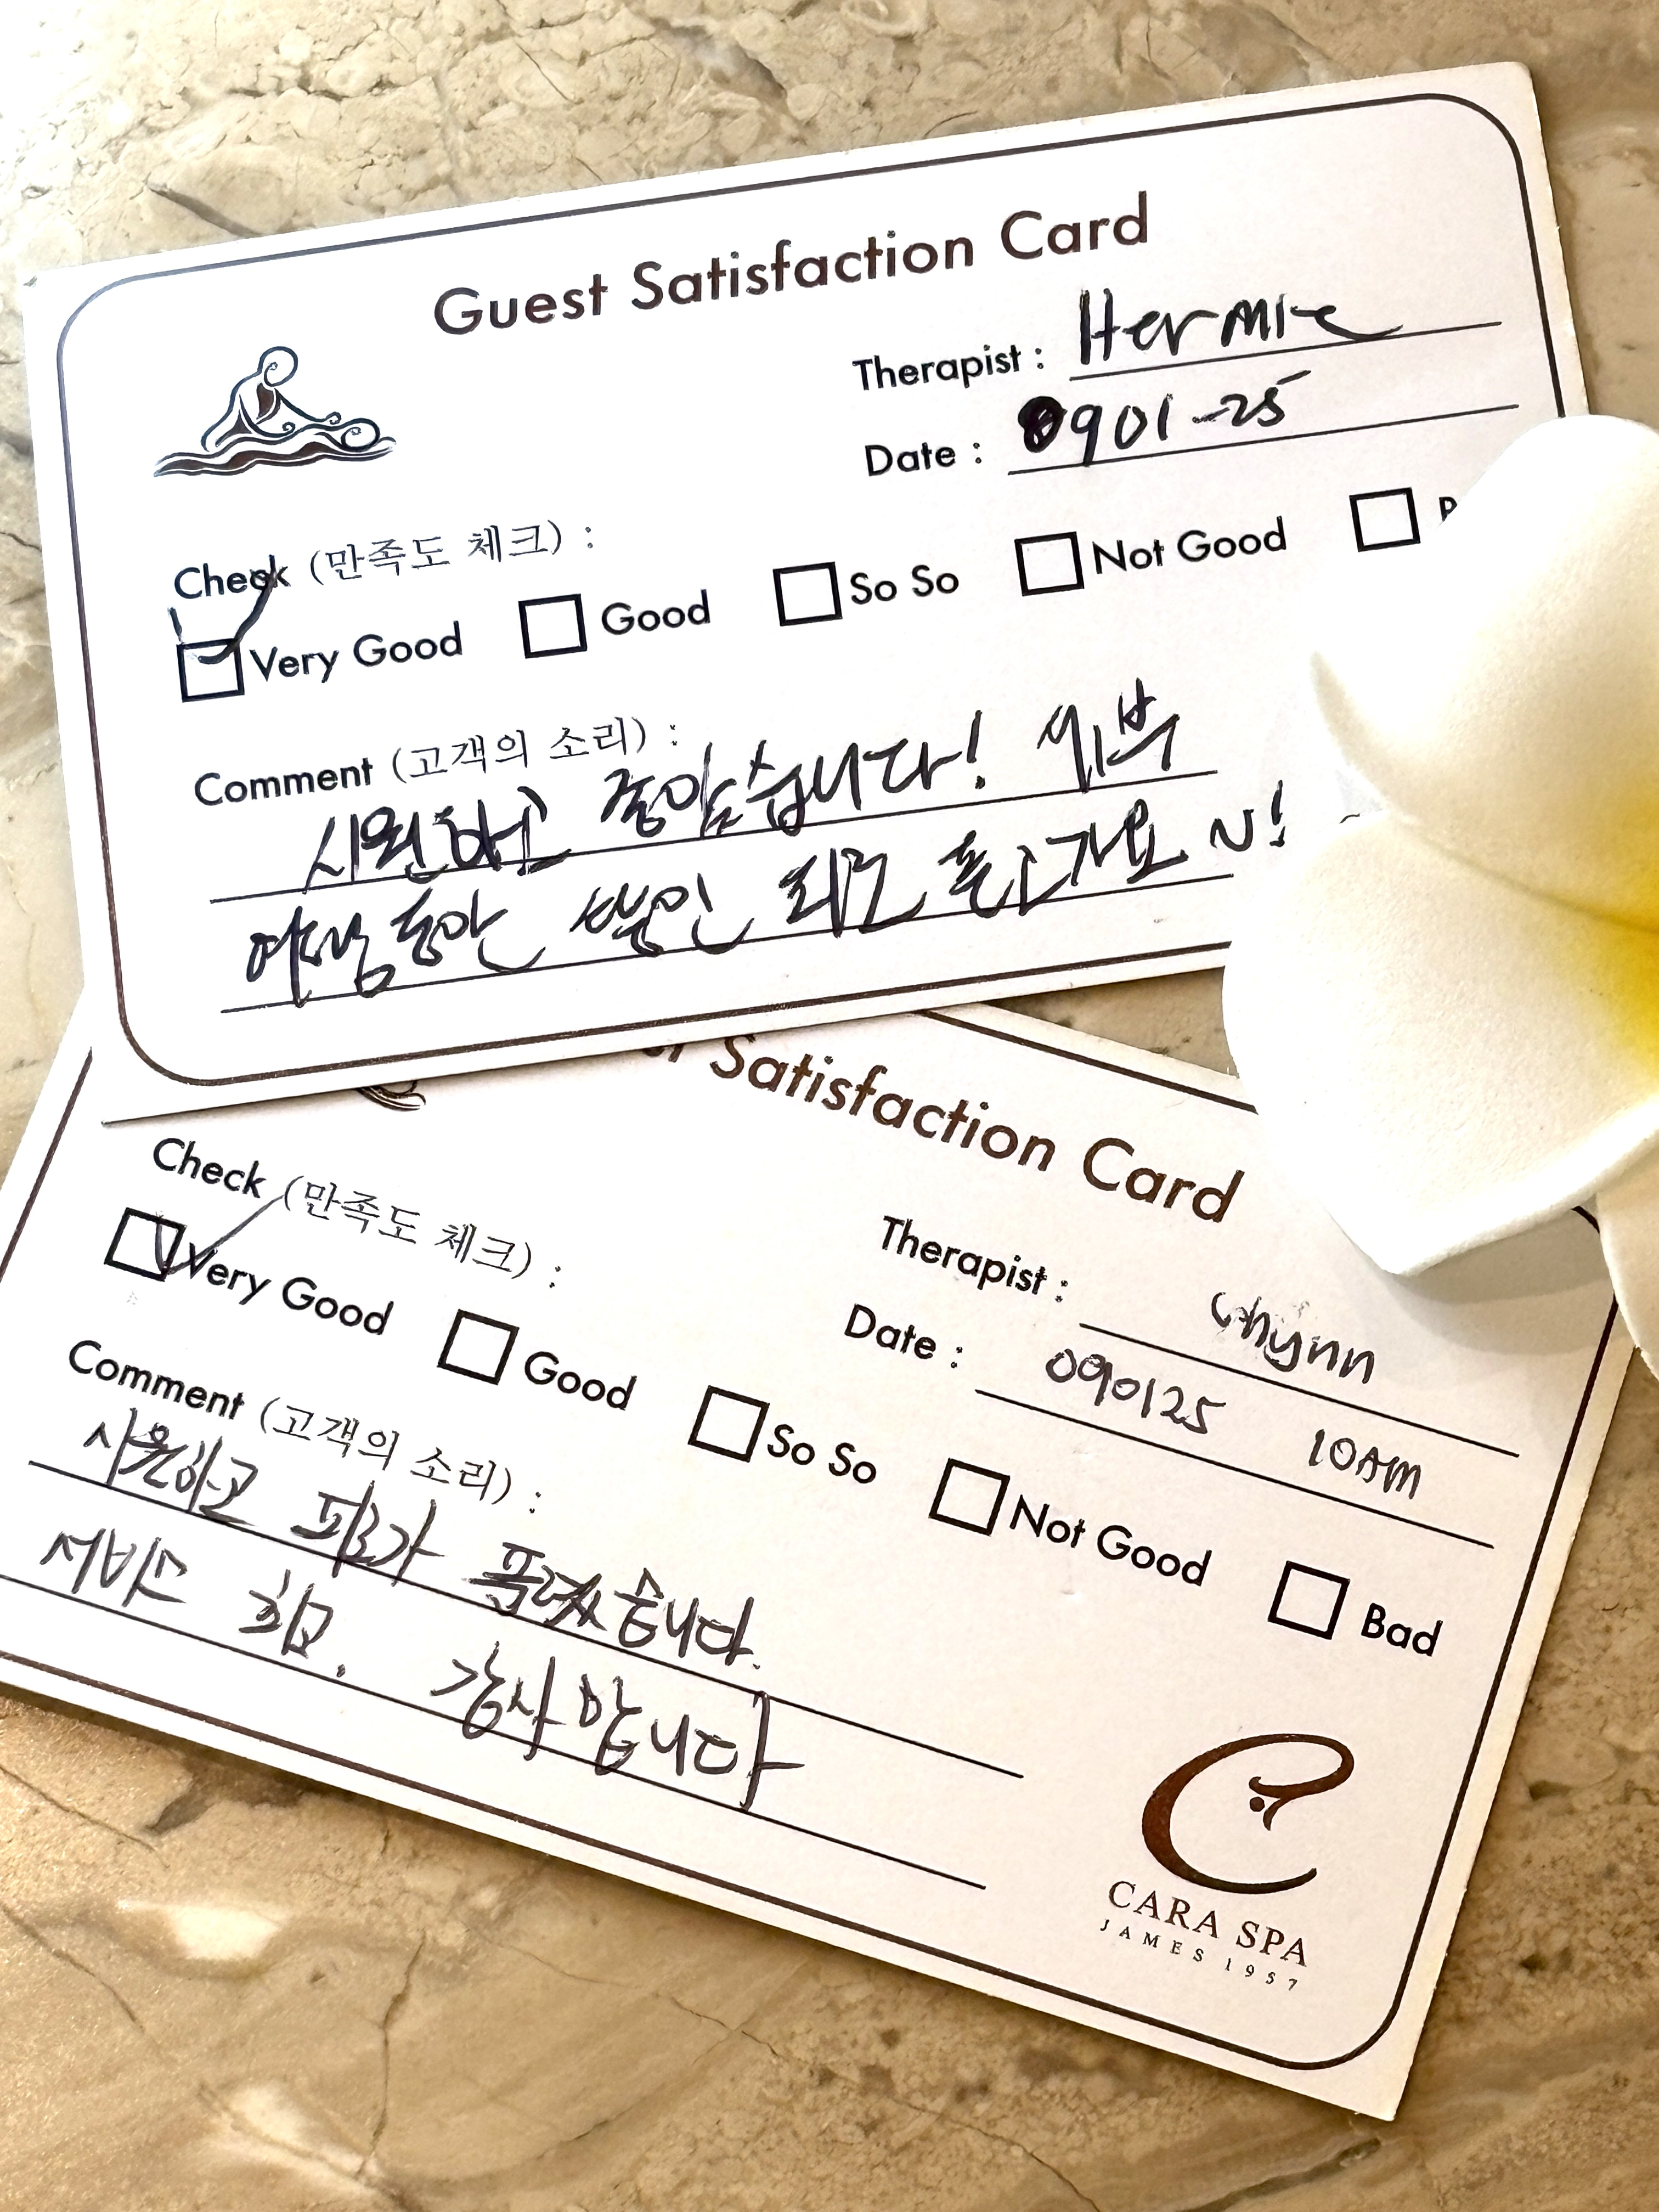 Guest Satisfaction Card
Therapist : Hermie
Date : 0901-25
Check (만족도 체크) :
Very Good Good So So Not Good
Comment (고객의 소리) :
시원하고 좋았습니다! 세부
여행동안 쌓인 피로 풀고가요 ~!
Satisfaction Card
Therapist : Chynn
Date : 090125 10AM
Check (만족도 체크) :
Very Good Good So So Not Good Bad
Comment (고객의 소리) :
시원하고 피로가 풀렸습니다.
서비스 최고. 감사합니다
CARA SPA
JAMES 1957